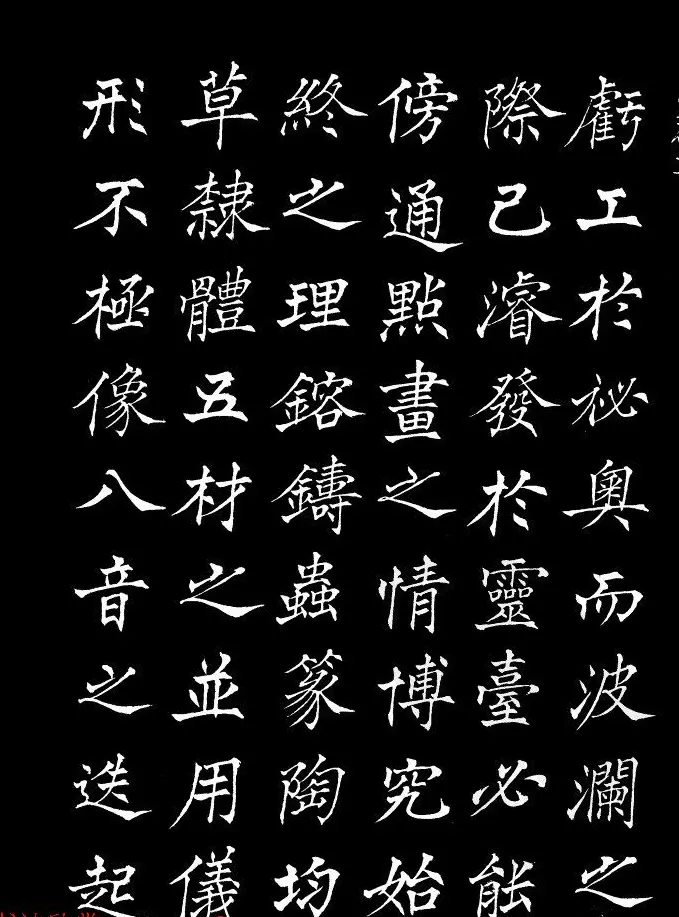 虧工於祕奧而波瀾之
際已濬發於靈臺必能
傍通點畫之情博究始
終之理鎔鑄蟲篆陶均
草隸體五材之並用儀
形不極像八音之迭起